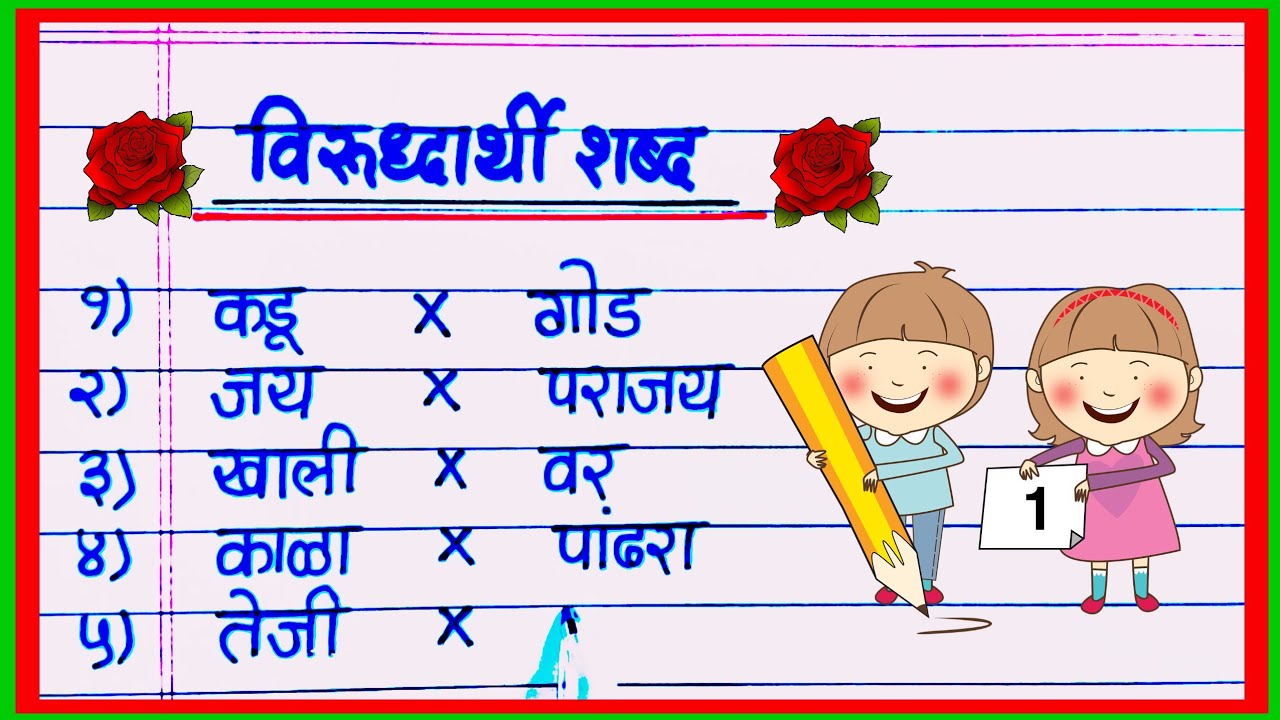 विरूध्दार्थी शब्द
१) कडू × गोड
२) जय × पराजय
३) खाली × वर
४) काळा × पांढरा
५) तेजी ×
1